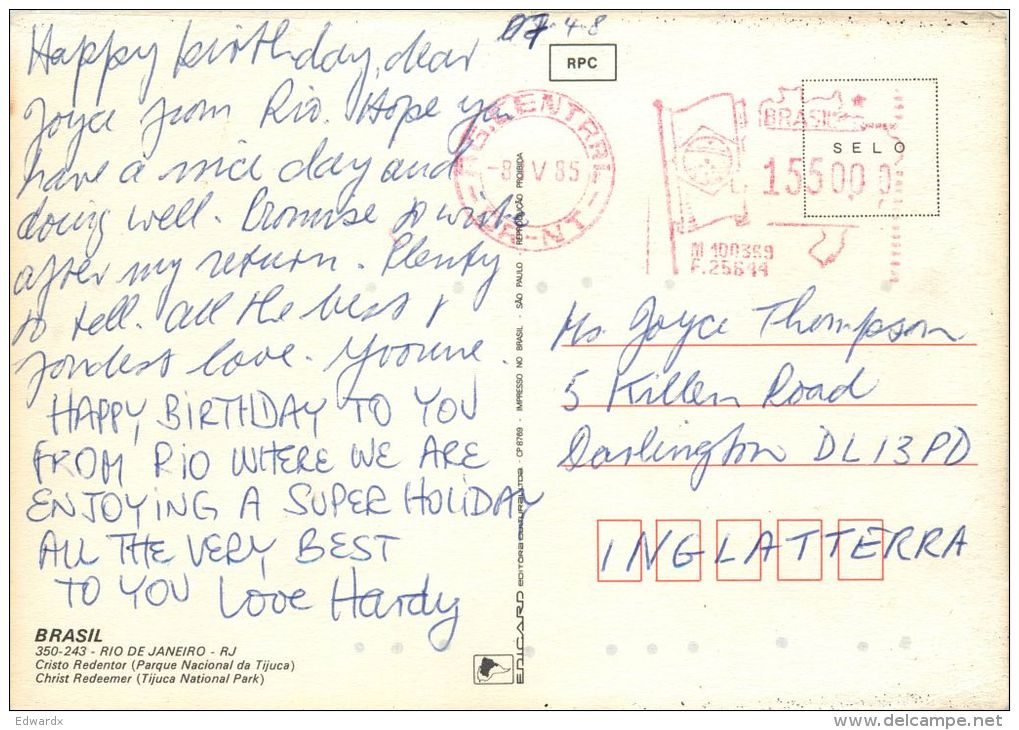 07 4-8
Happy birthday, dear
Joyce from Rio. Hope you
have a nice day and
doing well. Promise to write
after my return. Plenty
to tell. all the best &
fondest love. Yvonne.
HAPPY BIRTHDAY TO YOU
FROM RIO WHERE WE ARE
ENJOYING A SUPER HOLIDAY
ALL THE VERY BEST
TO YOU Love Hardy
BRASIL
350-243 - RIO DE JANEIRO - RJ
Cristo Redentor (Parque Nacional da Tijuca)
Christ Redeemer (Tijuca National Park)
EDICARD EDITORA CULTURAL LTDA - CP 8769 - IMPRESSO NO BRASIL - SÃO PAULO - REPRODUÇÃO PROIBIDA
RPC
AG. CENTRAL
-8 V 85
BRASIL
SELO
15500 0
M 100399
F. 25644
Ms Joyce Thompson
5 Killen Road
Darlington DL13PD
INGLATTERRA
Edwardx
www.delcampe.net